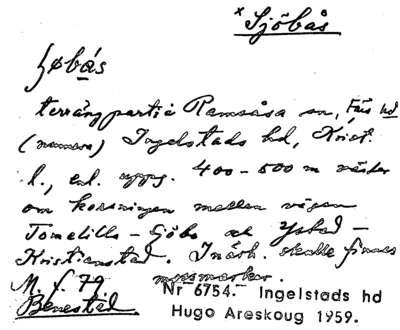 * Sjöbås
terrängparti i Ramsåsa sn, Färs hd
Ingelstads hd, Krist.
l., enl. uppg. 400-500 m väster
om korsningen mellan vägen
Tomelilla - Sjöbo och Ystad -
Kristianstad. skulle finnas
M. f. 79
Benestad.
Nr 6754. Ingelstads hd
Hugo Areskoug 1959.